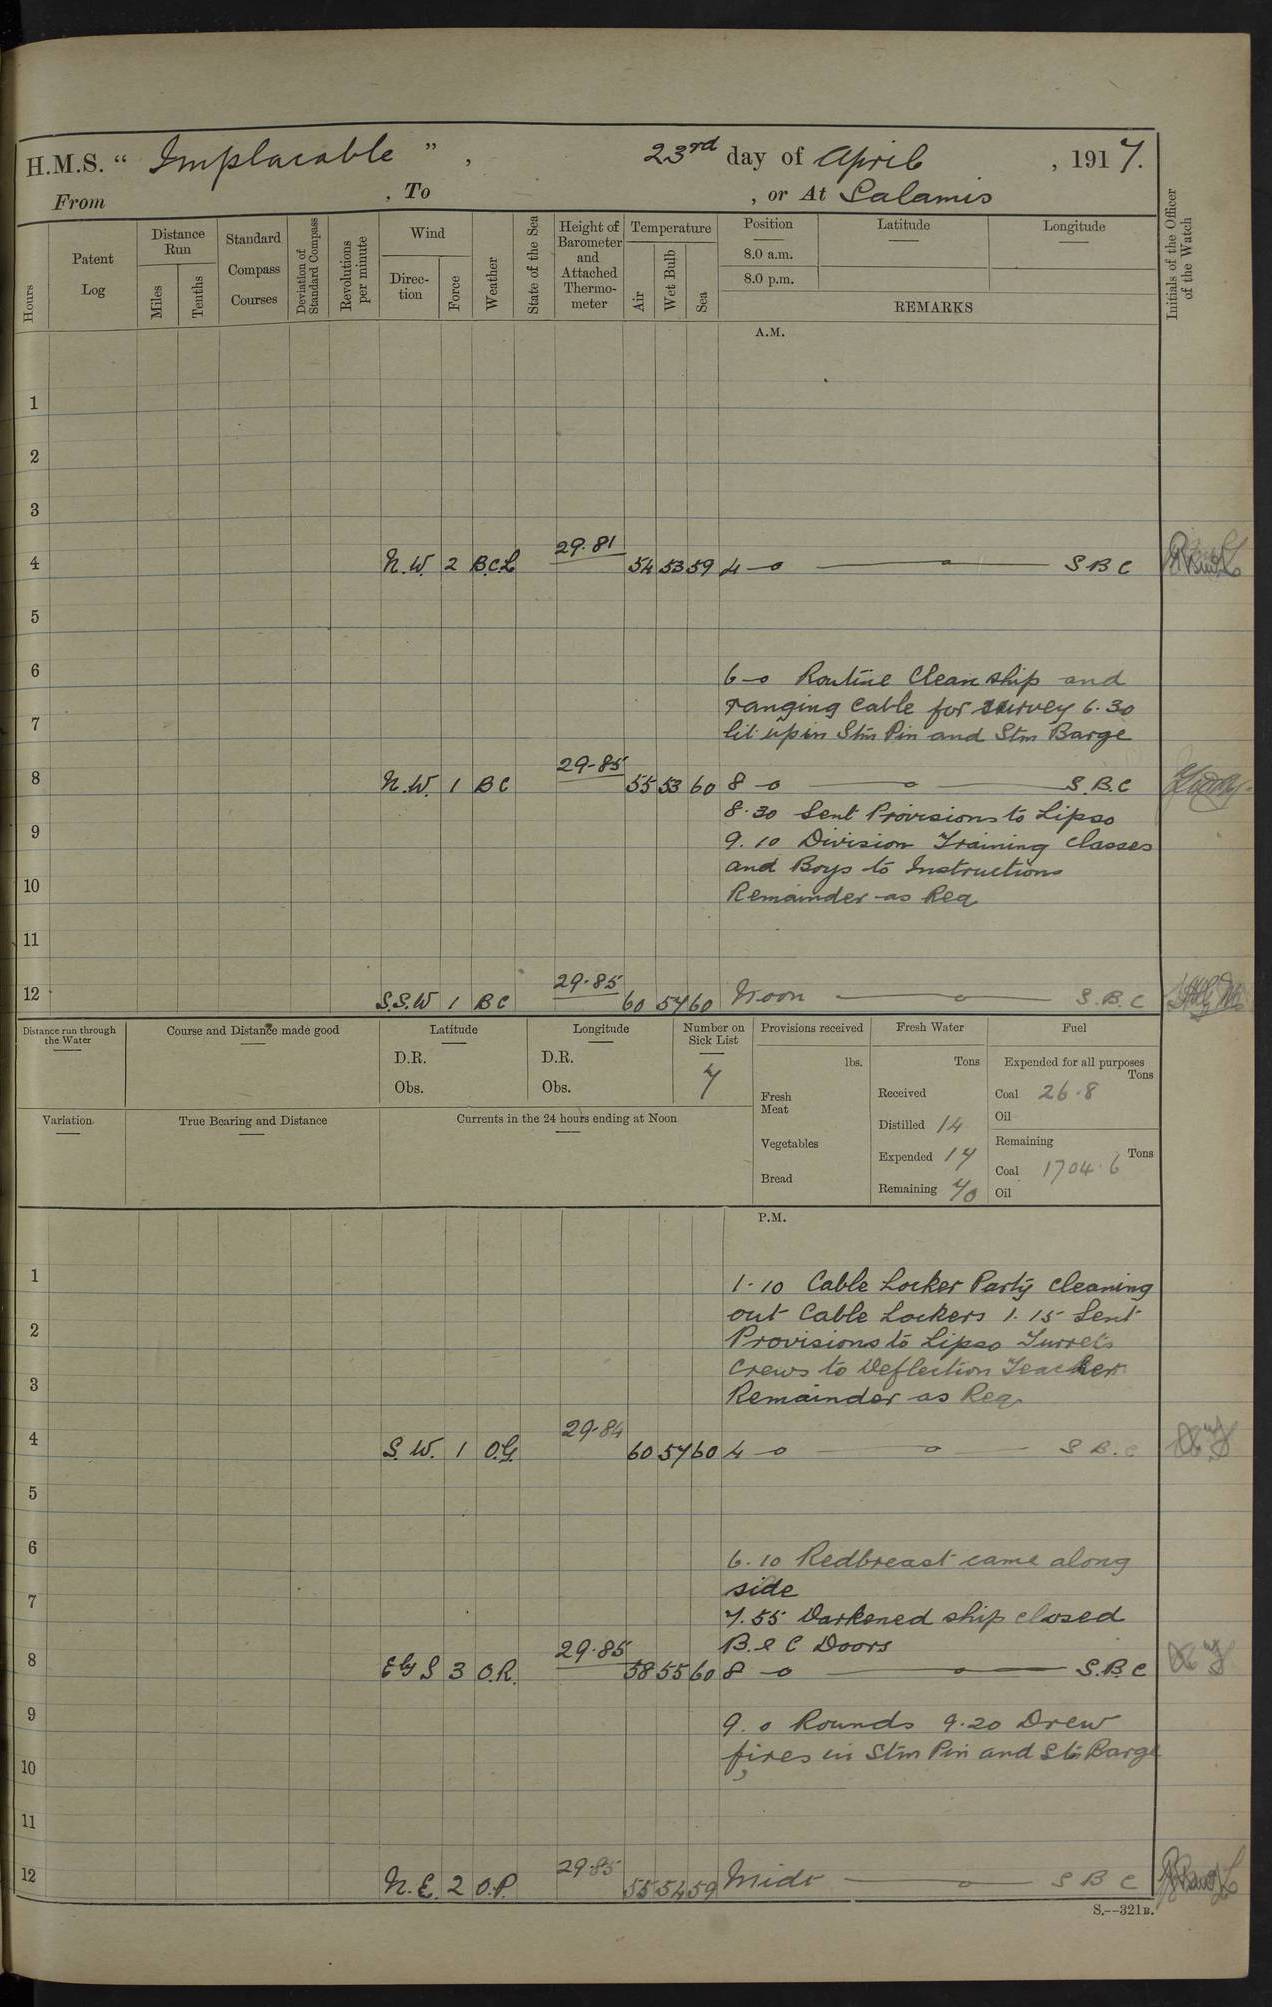 H.M.S. " Implacable " , 23rd day of April , 1917.
From , To , or At Salamis
Hours
Patent Log
Distance Run
Miles
Tenths
Standard Compass Courses
Deviation of Standard Compass
Revolutions per minute
Wind
Direction
Force
Weather
State of the Sea
Height of Barometer and Attached Thermometer
Temperature
Air
Wet Bulb
Sea
Position
8.0 a.m.
8.0 p.m.
Latitude
Longitude
REMARKS
Initials of the Officer of the Watch
A.M.
1
2
3
4 N.W. 2 B.C.L 29.81 54 53 59 4-0 — o — S B C
5
6
6-0 Routine Clean ship and
ranging cable for survey 6.30
7
lit up in Stm Pin and Stm Barge
8 N.W. 1 B C 29-85 55 53 60 8-0 — o — S.B.C
8.30 Sent Provisions to Lipso
9
9.10 Division Training Classes
and Boys to Instructions
10
Remainder as Req
11
12 S.S.W 1 B C 29.85 60 57 60 Noon — o — S.B.C
Distance run through the Water
Course and Distance made good
Latitude
D.R.
Obs.
Longitude
D.R.
Obs.
Number on Sick List
7
Provisions received
lbs.
Fresh Meat
Vegetables
Bread
Fresh Water
Tons
Received
Distilled 14
Expended 17
Remaining 70
Fuel
Expended for all purposes
Tons
Coal 26.8
Oil
Remaining
Tons
Coal 1704.6
Oil
Variation
True Bearing and Distance
Currents in the 24 hours ending at Noon
P.M.
1
1.10 Cable Locker Party cleaning
out Cable Lockers 1.15 Sent
2
Provisions to Lipso Turrets
crews to Deflection Teacher
3
Remainder as Req.
4 S.W. 1 O.G. 29.84 60 57 60 4-0 — o — S B.C
5
6
6.10 Redbreast came along
side
7
7.55 Darkened ship closed
B & C Doors
8 E by S 3 O.R. 29.85 58 55 60 8-0 — o — S.B.C
9
9.0 Rounds 9.20 Drew
fires in Stm Pin and Stm Barge
10
11
12 N.E. 2 O.P. 29.85 55 54 59 Midt — o — S B C
S.--321B.